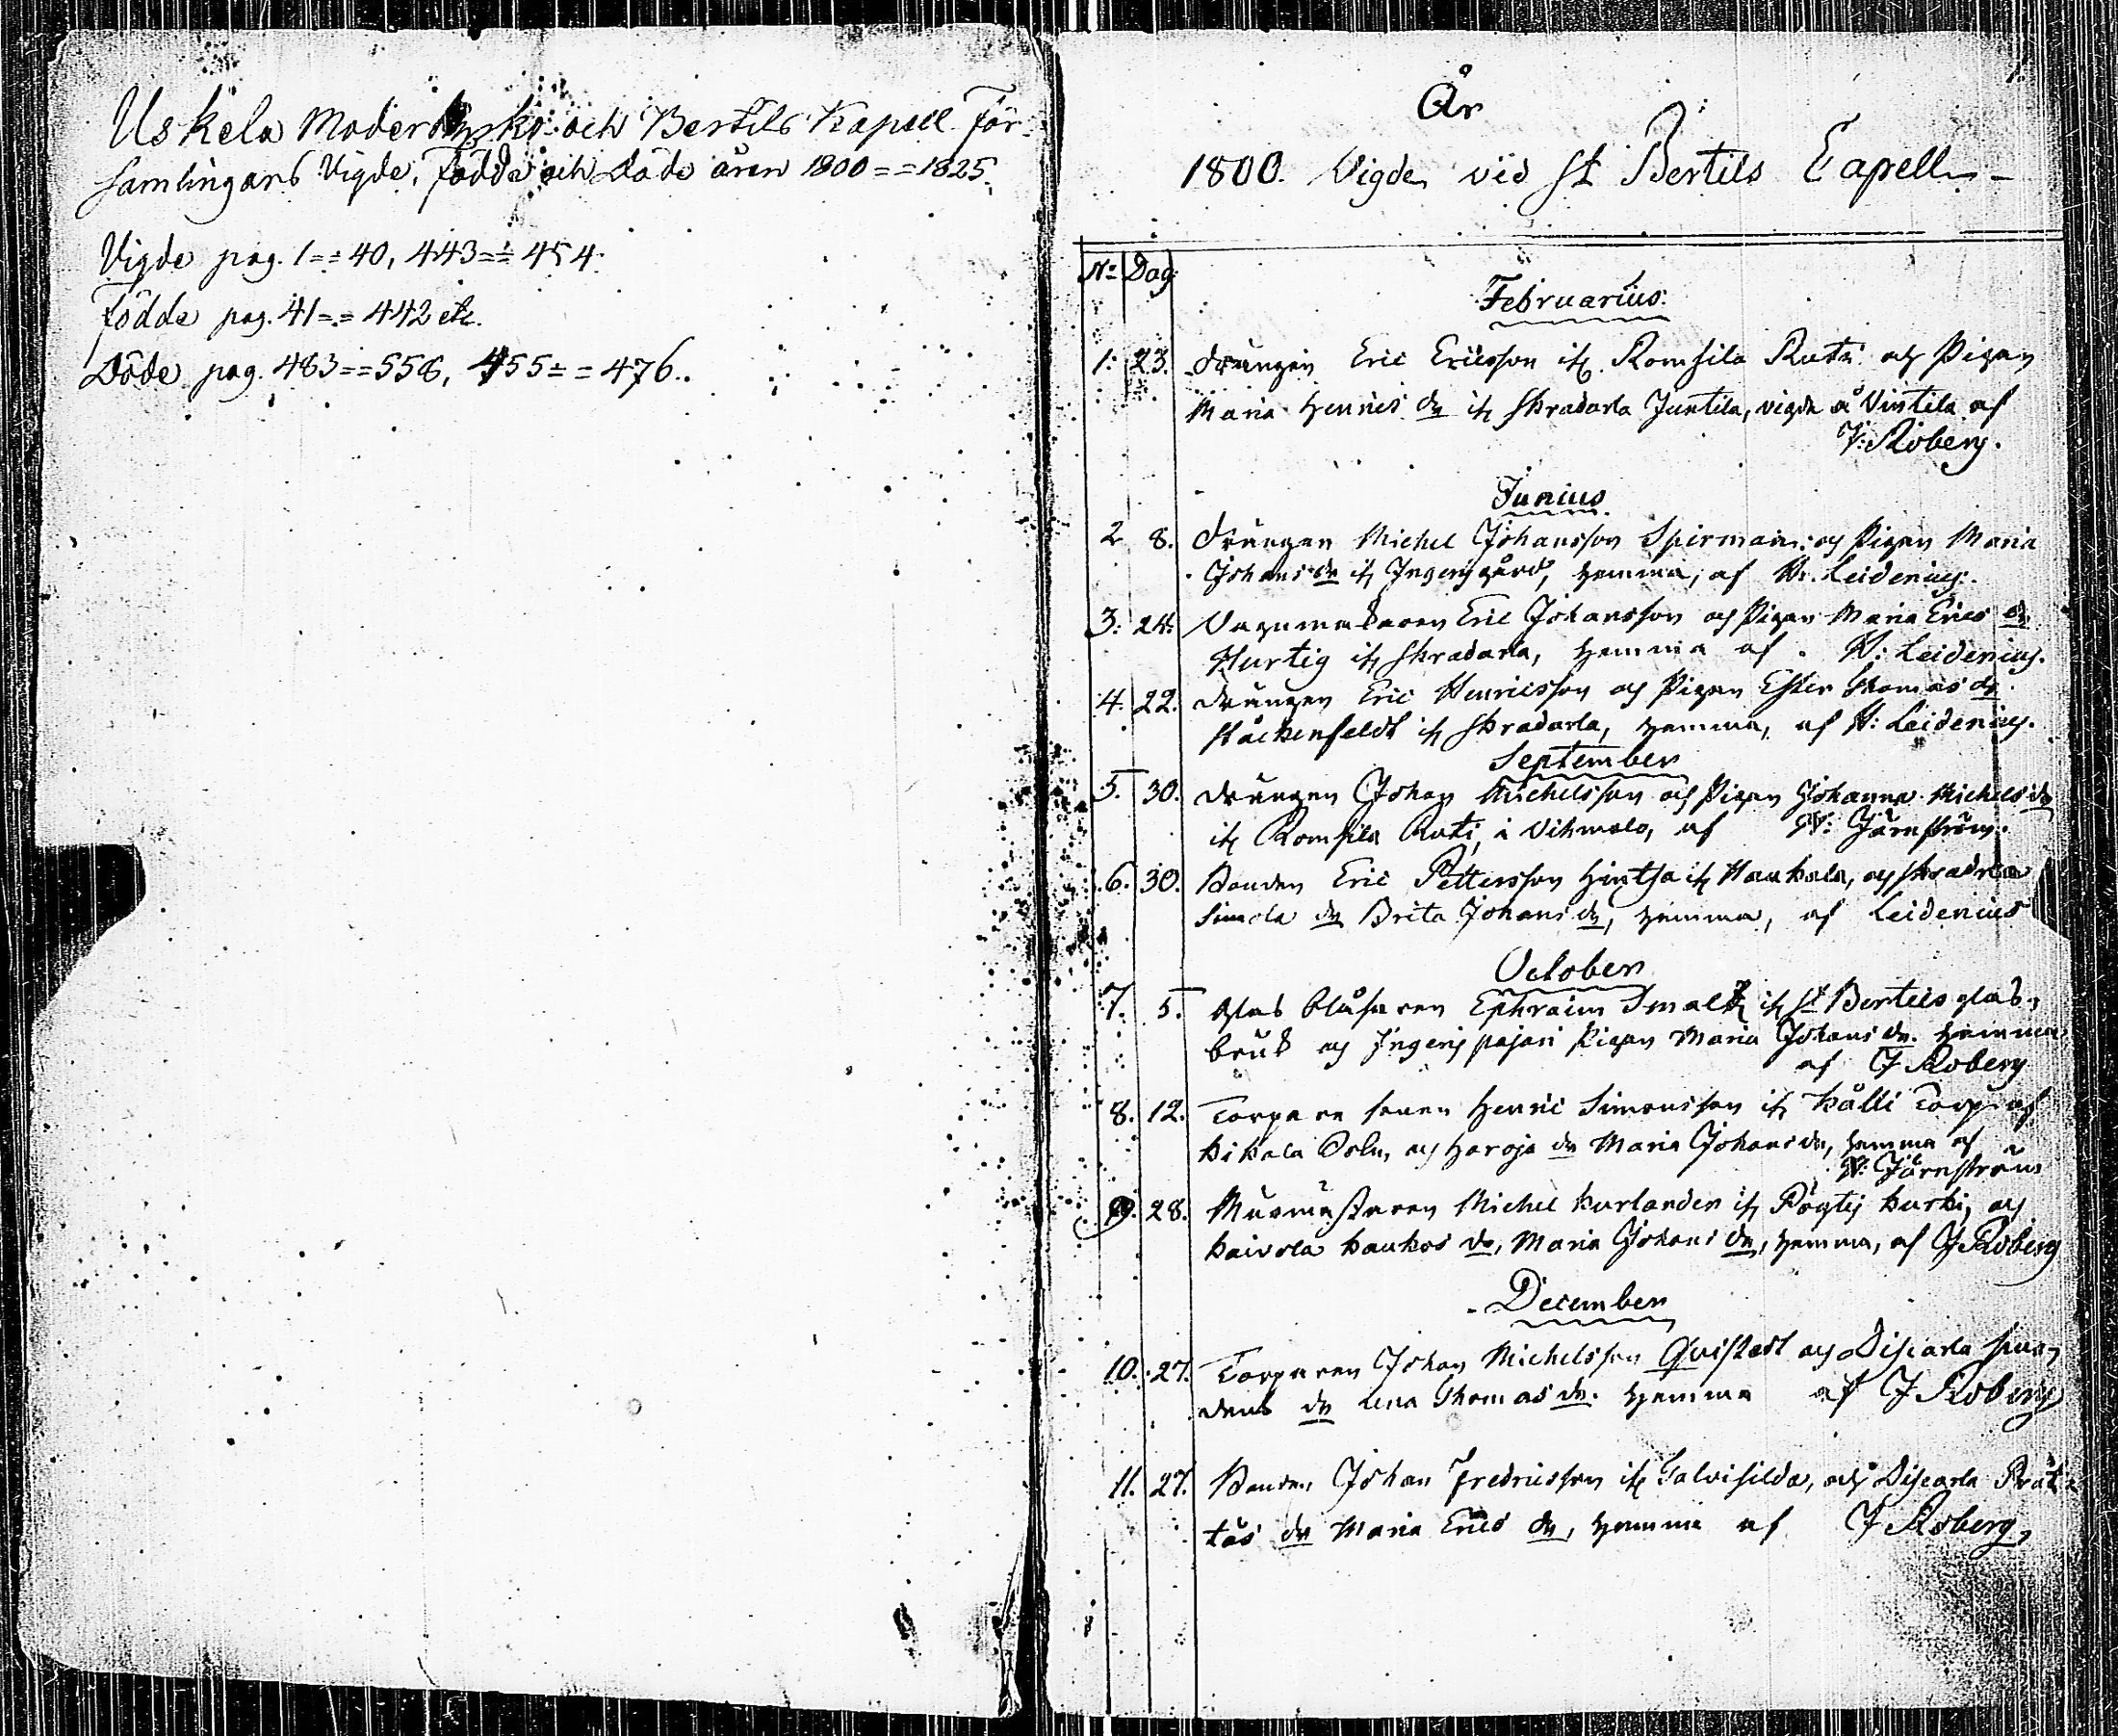 Uskela Moderkyrko och Bertils Kapell För-
samlingars Vigde, Födde och Döde åren 1800==1825.
Vigde pag. 1==40, 443==454.
Födde pag. 41==442 etc.
Döde pag. 483==558, 455==476.
År
1800. Vigde vid St Bertils Capell
No Dag
Februarius.
1. 23. Drängen Eric Ericsson ifr. Romsila Ruti och Pigan
Maria Henrics dr ifr Skradarla Juntila, vigde å Vintila af
J: Roberg.
Junius
2 8. Drängen Michel Johansson Spirman och Pigan Maria
Johans dr ifr Ingeris gård, hemma, af H: Leidenius.
3. 24. Vagnmakaren Eric Johansson och Pigan Maria Erics dr
Hurtig ifr Skradarla, hemma af H: Leidenius.
4. 22. Drängen Eric Henricsson och Pigan Ester Thomas dr
Stäckenfeldt ifr Skradarla, hemma, af H: Leidenius.
September
5. 30. Drängen Johan Michelsson och Pigan Johanna Michels dr
ifr Romsila Ruti, i Vihmalo, af N: Järnström.
6. 30. Bonden Eric Pettersson Hintsa ifr Haukala, och Skradarla
Simola dr Brita Johans dr, hemma, af Leidenius
October
7. 5. Glas blåsaren Ephraim Smaltz ifr St Bertils glas-
bruk och Ingeris pajari Pigan Maria Johans dr. hemma
af J Roberg
8. 12. Torpare sonen Henric Simonsson ifr Källi Torp af
Kikala Sokn, och Haroja dr Maria Johans dr, hemma af
N: Järnström
9. 28. Murmästaren Michel Kurlander ifr Pögtis Kurki, och
Kaivola Kaukos dr, Maria Johans dr, hemma, af J Roberg
December
10. 27. Torparen Johan Michelsson Qvistedt och Discarla
dr Lena Thomas dr. hemma af J Roberg
11. 27. Bonden Johan Fredricsson ifr Talvisilda, och Discarla Prät-
täs dr Maria Erics dr, hemma af J Roberg,